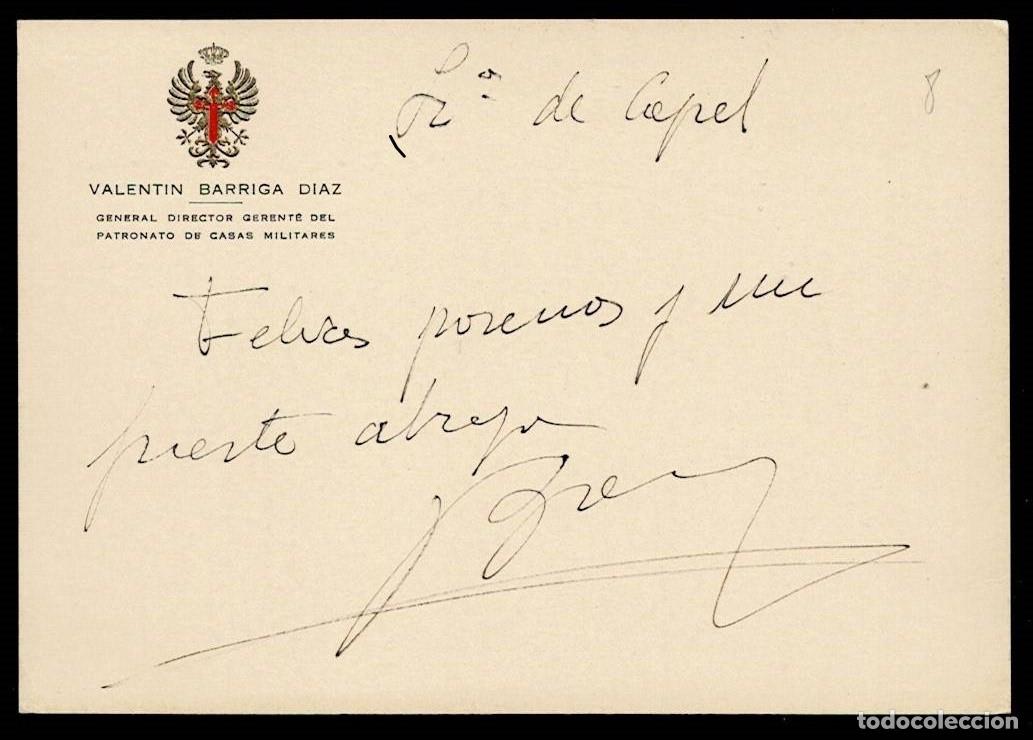 Frº de Capel
8
VALENTIN BARRIGA DIAZ
GENERAL DIRECTOR GERENTE DEL
PATRONATO DE CASAS MILITARES
Felices y un
fuerte abrazo
todocoleccion